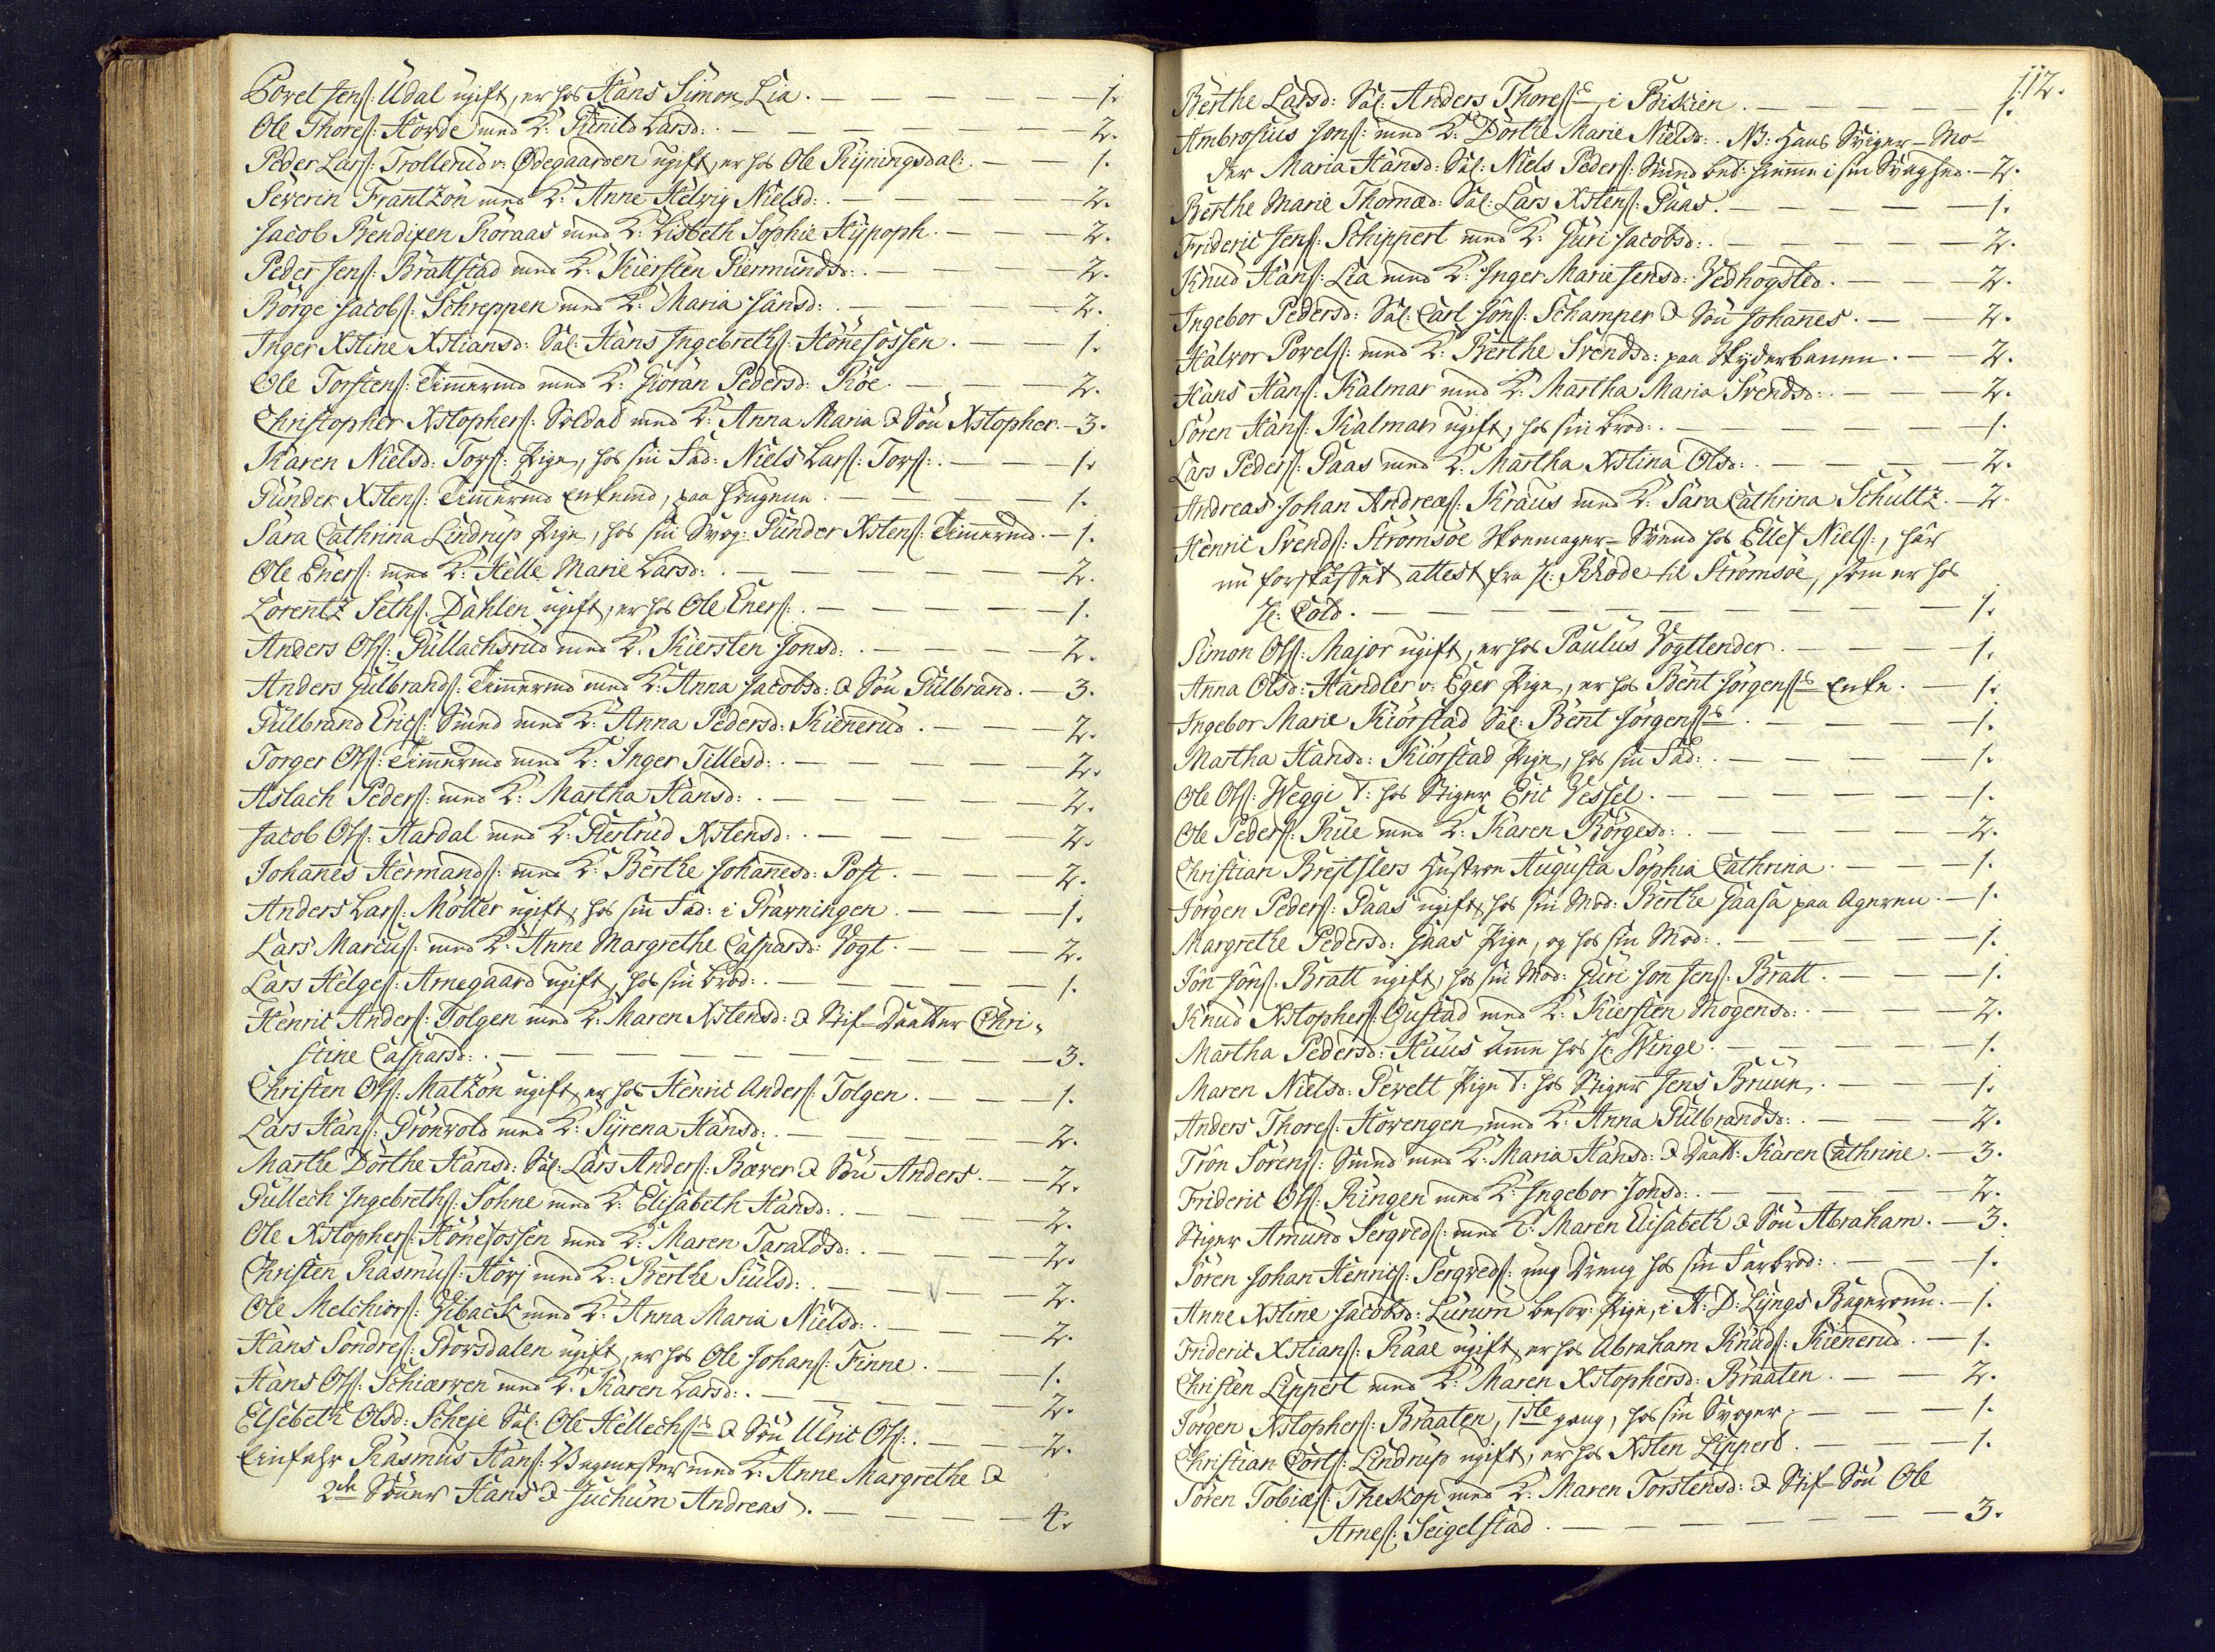 Povel Jenſ: Udal ugift, er hos Hans Simon Lia. — 1.
Ole Thoreſ: Hovde med K: Gunild Larsd: — 2.
Peder Larſ: Trollerud v: Ødegaarden ugift, er hos Ole Ryningsdal: — 1.
Severin Frantzon med K: Anne Helvig Nielsd: — 2.
Jacob Bendixen Roraas med K: Lisbeth Sophie Hypoph. — 2.
Peder Jenſ: Brattstad med K: Kiersten Giermundsd: — 2.
Börge Jacobſ: Schreppen med K: Maria Jansd: — 2.
Inger Xstine Xstiansd: Sal: Hans Ingebrethſ: Hönefossen. — 1.
Ole Torstenſ: Timermd med K: Giöran Pedersd: Röe. — 2.
Christopher Xstopherſ: Soldat med K: Anna Maria & Sön Xstopher. — 3.
Karen Nielsd: Torſ: Pige, hos sin Fad: Niels Larſ: Torſ: — 1.
Gunder Xstenſ: Timermd Enkemd, paa Haugene. — 1.
Sara Cathrina Lindrup Pige, hos sin Svog: Gunder Xstenſ: Timermd. — 1.
Ole Enerſ: med K: Helle Marie Larsd: — 2.
Lorentz Sethſ: Dahlen ugift, er hos Ole Enerſ: — 1.
Anders Olſ: Gullachsrud med K: Kiersten Jonsd: — 2.
Anders Gulbrandſ: Timermd med K: Anna Jacobsd: & Sön Gulbrand. — 3.
Gulbrand Ericſ: Smed med K: Anna Pedersd: Kienerud. — 2.
Torger Olſ: Timermd med K: Inger Tillesd: — 2.
Aslach Pederſ: med K: Martha Hansd: — 2.
Jacob Olſ: Aardal med K: Giertrud Xstensd: — 2.
Johanes Hermandſ: med K: Berthe Johanesd: Post. — 2.
Anders Larſ: Möller ugift, hos sin Fad: i Gravningen. — 1.
Lars Marcuſ: med K: Anne Margrethe Caspersd: Vogt. — 2.
Lars Helgeſ: Arnegaard ugift, hos sin Brod: — 1.
Henric Anderſ: Tolgen med K: Maren Xstensd: & Stif-Daatter Chri-
stine Caspersd: — 3.
Christen Olſ: Matzon ugift, er hos Henric Anderſ: Tolgen. — 1.
Lars Hanſ: Grönvold med K: Syrena Hansd: — 2.
Marthe Dorthe Hansd: Sal: Lars Anderſ: Bæver & Sön Anders. — 2.
Gullech Ingebrethſ: Sohne med K: Elisabeth Hansd: — 2.
Ole Xstopherſ: Hönefossen med K: Maren Taraldsd: — 2.
Christen Rasmuſ: Horj med K: Berthe Siulsd: — 2.
Ole Melchiorſ: Vibach med K: Anna Maria Nielsd: — 2.
Hans Sondreſ: Storsdalen ugift, er hos Ole Johanſ: Finne. — 1.
Hans Olſ: Schiærven med K: Karen Larsd: — 2.
Elsebeth Olsd: Scheje Sal: Ole Hellechſ: & Sön Ulric Olſ: — 2.
Einfahr Rasmus Hanſ: Vagmester med K: Anne Margrethe &
2de Söner Hans & Juchum Andreas. — 4.
112.
Berthe Larsd: Sal: Anders Thoreſ: i Biskien. — 1.
Ambrosius Jonſ: med K: Dorthe Marie Nielsd: NB: Hans Sviger-Mo-
der Maria Hansd: Sal: Niels Pederſ: Smed bet: hieme i sin Svaghed. — 2.
Berthe Marie Thomæd: Sal: Lars Xstenſ: Paas. — 1.
Frideric Jenſ: Schippert med K: Guri Jacobsd: — 2.
Knud Hanſ: Lia med K: Inger Marie Jensd: Vedhogsted. — 2.
Ingebor Pedersd: Sal: Carl Jonſ: Schamper & Sön Johanes. — 2.
Halvor Povelſ: med K: Berthe Svendsd: paa Skyderbanen. — 2.
Hans Hanſ: Kalmar med K: Martha Maria Svendsd: — 2.
Sören Hanſ: Kalmar ugift, hos sin Brod: — 1.
Lars Pederſ: Paas med K: Martha Xstina Olsd: — 2.
Andreas Johan Andreæſ: Kraus med K: Sara Cathrina Schultz. — 2.
Henric Svendſ: Strömsöe Skoemager-Svend hos Ellef Nielſ:, har
nu forskaffet attest fra Hr: Rhode til Strömsöe, som er hos
Hr: Cold. — 1.
Simon Olſ: Major ugift, er hos Paulus Vogtlender. — 1.
Anna Olsd: Handler v: Eger Pige, er hos Bent Jörgenſ: Enke. — 1.
Ingebor Marie Kiörstad Sal: Bent Jörgenſ: — 1.
Martha Hansd: Kiörstad Pige, hos sin Fad: — 1.
Ole Olſ: Weggi T: hos Stiger Eric Vessel. — 1.
Ole Pederſ: Rue med K: Karen Börgesd: — 2.
Christian Brejtslers Hustroe Augusta Sophia Cathrina. — 1.
Jörgen Pederſ: Gaas ugift, hos sin Mod: Berthe Gaasa paa Ageren. — 1.
Margrethe Pedersd: Gaas Pige, og hos sin Mod: — 1.
Jon Jonſ: Bratt ugift, hos sin Mod: Guri Jon Jenſ: Bratt. — 1.
Knud Xstopherſ: Gustad med K: Kiersten Mogensd: — 2.
Martha Pedersd: Huus Ame hos Hr: Winge. — 1.
Maren Nielsd: Gevelt Pige T: hos Stiger Jens Bruun. — 1.
Anders Thoreſ: Hovengen med K: Anna Gulbrandsd: — 2.
Tron Sörenſ: Smed med K: Maria Hansd: & Daatt: Karen Cathrine. — 3.
Frideric Olſ: Ringen med K: Ingebor Jonsd: — 2.
Stiger Amund Sergvedſ: med K: Maren Elisabeth & Sön Abraham. — 3.
Sören Johan Henricſ: Sergvedſ: ung Dreng hos sin Farbrod: — 1.
Anne Xstine Jacobsd: Lurum besov: Pige, i H: D: Lyngs Bageroun. — 1.
Frideric Xstianſ: Raae ugift, er hos Abraham Knudſ: Kienerud. — 1.
Christen Lippert med K: Maren Xstophersd: Braaten. — 2.
Jörgen Xstopherſ: Braaten, 1ste gang, hos sin Svoger. — 1.
Christian Cortſ: Lindrup ugift, er hos Xsten Lippert. — 1.
Sören Tobiæſ: Theskop med K: Maren Torstensd: & Stif-Sön Ole
Arneſ: Seigelstad. — 3.